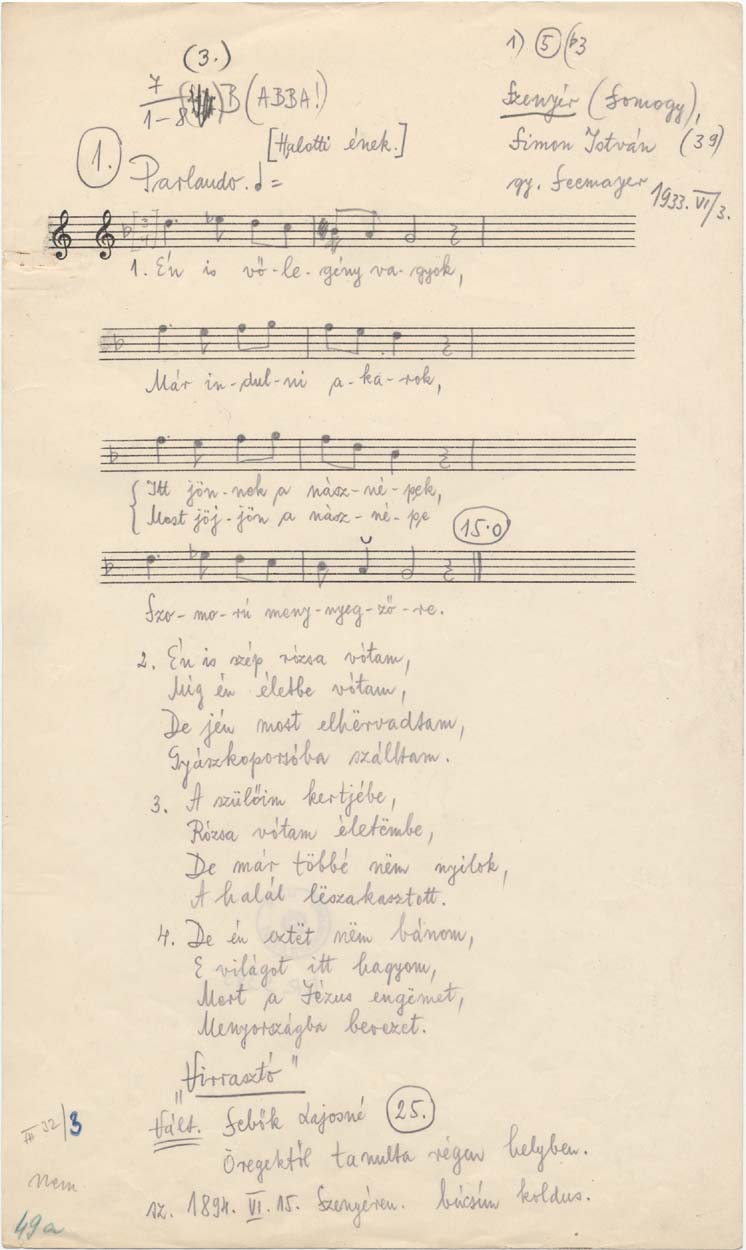 (3.)
1) 5 (b3
7
1-8 B (ABBA!)
Szenyér (Somogy),
[Halotti ének.]
Simon István (39)
1. Parlando. =
gy. Seemayer 1933. VI/3.
1. Én is vő-le-gény va-gyok,
Már in-dul-ni a-ka-rok,
Itt jön-nek a nász-né-pek,
Most jöj-jön a nász-né-pe
15.0
Szo-mo-rú meny-nyeg-ző-re.
2. Én is szép rózsa vótam,
Míg én életbe vótam,
De jén most elhërvadtam,
Gyászkoporsóba szálltam.
3. A szülőim kertjébe,
Rózsa vótam életëmbe,
De már többé nëm nyilok,
A halál lëszakasztott.
4. De én eztët nëm bánom,
E világot itt hagyom,
Mert a Jézus engëmet,
Menyországba bevezet.
"Virrasztó"
Vált. Sebők Lajosné 25.
Öregektől tanulta régen helyben.
sz. 1894. VI. 15. Szenyéren. búcsún koldus.
III 32/3
nem
49a